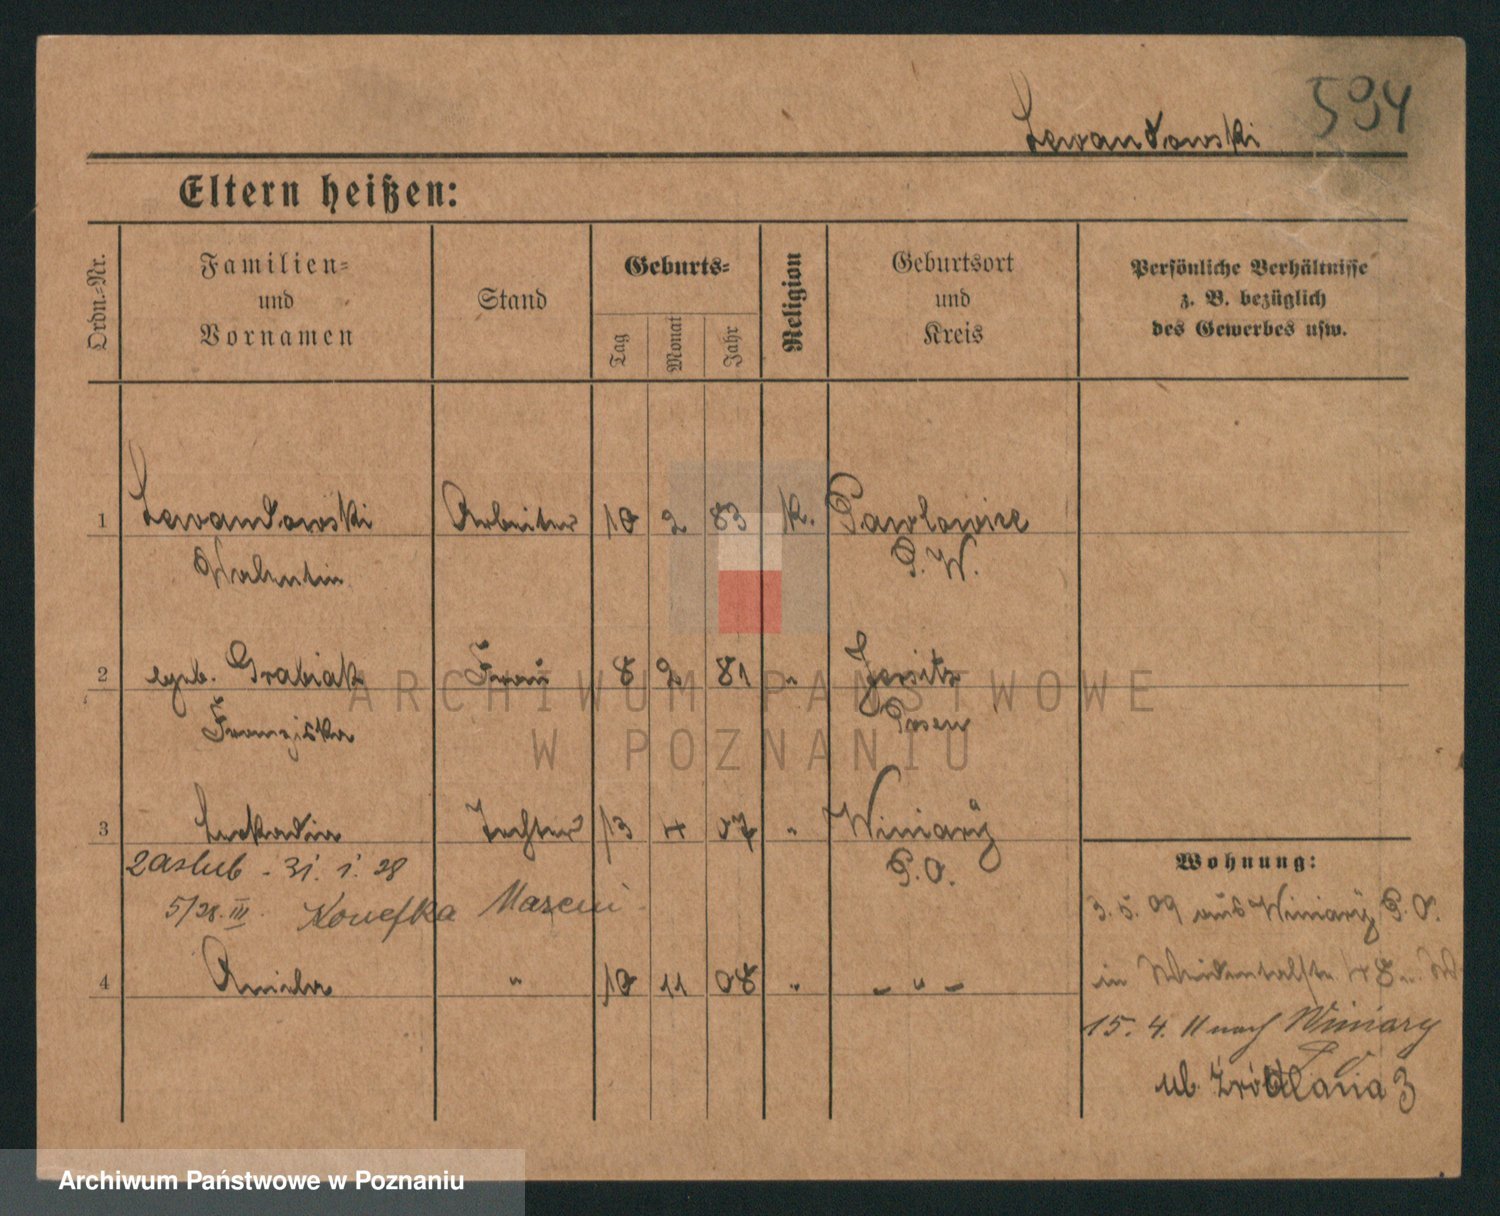 594
Lewandowski
Eltern heißen:
Ordn.-Nr.
Familien-
und
Vornamen
Stand
Geburts-
Tag
Monat
Jahr
Religion
Geburtsort
und
Kreis
Persönliche Verhältnisse
z. B. bezüglich
des Gewerbes usw.
1 Lewandowski Arbeiter 10 2 83 K. Pawlowice
Valentin P. W.
2 geb. Grabiak Frau 8 2 81 " Jersitz
Franziska Posen
3 Leokadia Tochter 13 4 07 " Winiary
P. O.
zaślub - 31. 1. 28
5/28. III. Konefka
4 Aniela " 10 11 08 " - " -
Wohnung:
3. 5. 09 aus Winiary P. O.
in 48
15. 4. 11 nach Winiary
P O
ul. Źródlana 3
ARCHIWUM PAŃSTWOWE
W POZNANIU
Archiwum Państwowe w Poznaniu